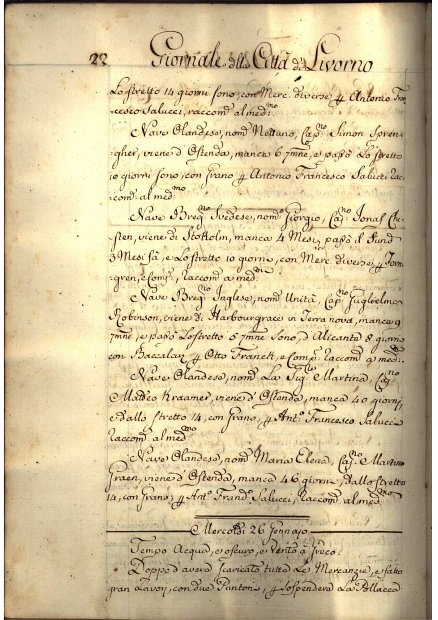 22 Giornale della Città di Livorno
Lo stretto 14 giorni sono, con Merc. diverse p Antonio Fran
cesco Salucci, raccom. al med.mo
Nave Olandese, nom.a Nettuno, Cap.no Simon Spren
gher, viene d'Ostenda, manca 6 7mne, e passò Lo stretto
10 giorni sono, con Grano p Antonio Francesco Salucci rac
com. al med.mo
Nave Breg.no Svedese, nom.o Giorgio, Cap.no Jonas
sten, viene di Stokolm, manca 4 Mesi, passò il Sund
3 Mesi fà, e Lo stretto 10 giorni, con Merc. diverse, p
gren, e Comp.i, raccom. a med.mi
Nave Breg.no Inglese, nom.a Unità, Cap.no Guglielmo
Robinson, viene di Harbourgrace in Terra nova, manca 9
7mne, e passò Lo stretto 5 7mne sono, d'Alicante 8 giorni
con Baccalar, p Otto Franck, e Comp.i raccom. a med.mi
Nave Olandese, nom.a La Sig.a Martina, Cap.no
Matteo Kraamer, viene d'Ostenda, manca 40 giorni,
e dallo stretto 14, con Grano, p Ant.o Francesco Salucci
raccom. al med.mo
Nave Olandese, nom.a Maria Elena, Cap.no Martino
Graen, viene d'Ostenda, manca 46 giorni, dallo stretto
14, con Grano, p Ant.o Fran.co Salucci, raccom. al med.mo
Mercoldi 26 Gennajo
Tempo Acqua, e oscuro, e vento à Greco.
Doppo d'avere scaricato tutte Le Mercanzie, e fatto
gran Lavori, con due Puntoni, p sospendere La Pollacca